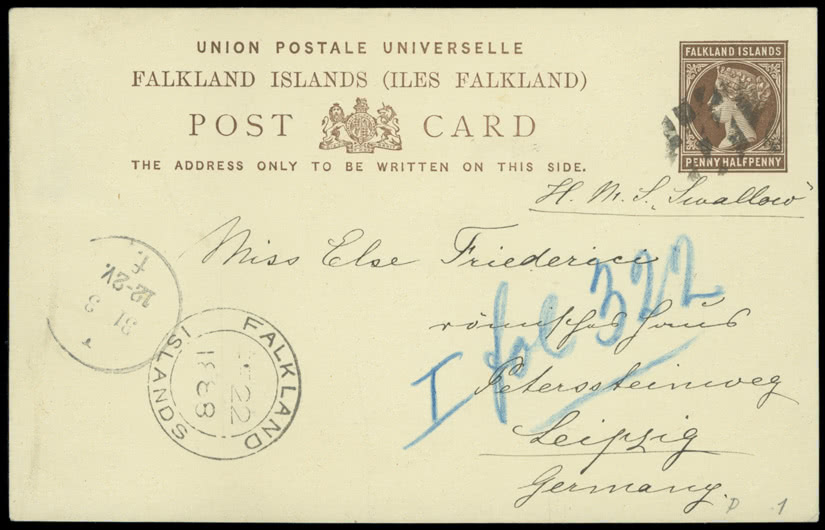 UNION POSTALE UNIVERSELLE
FALKLAND ISLANDS (ILES FALKLAND)
POST CARD
THE ADDRESS ONLY TO BE WRITTEN ON THIS SIDE.
FALKLAND ISLANDS
PENNY HALFPENNY
H. M. S. „Swallow"
Miss Else Friederici
I fol 322
römisches Haus
Peterssteinweg
Leipzig
Germany.
31 3
12-2V.
f.
FALKLAND ISLANDS
22
1888
p. 1